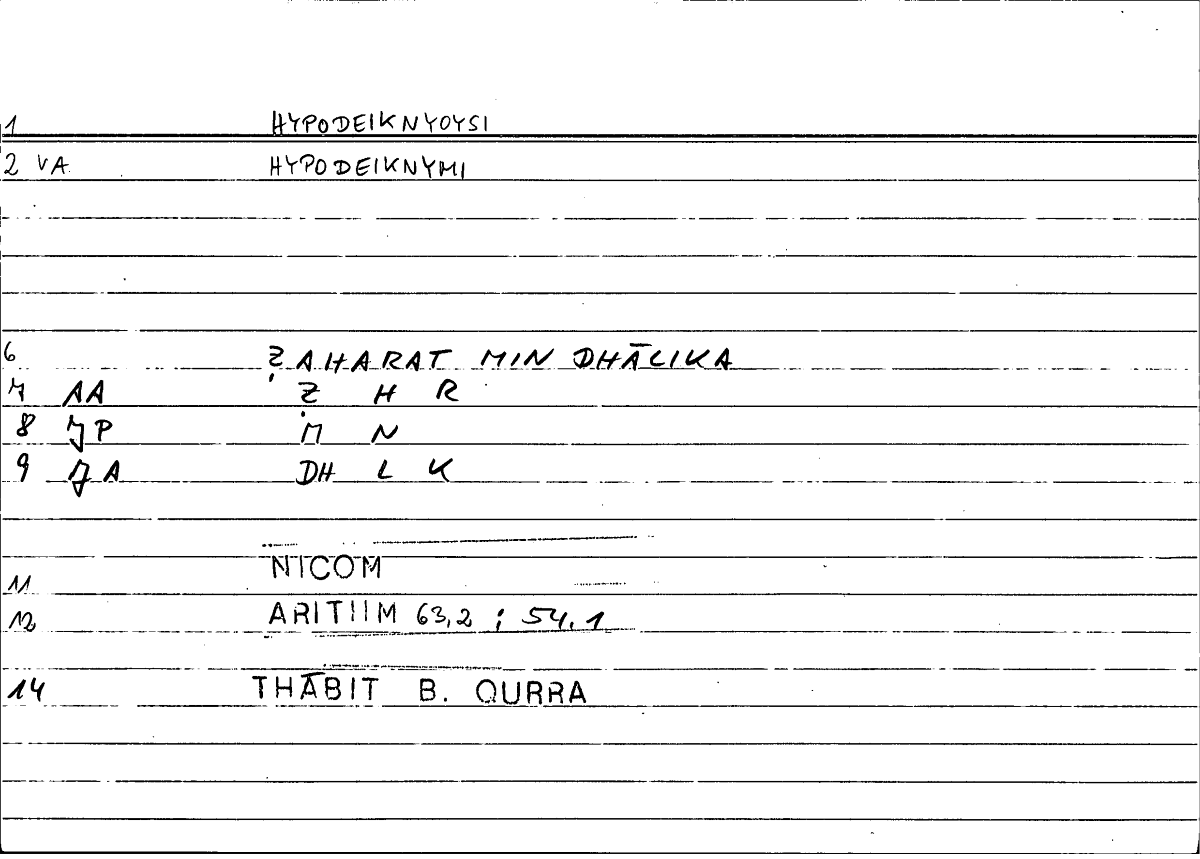 1 HYPODEIKNYOYSI
2 VA HYPODEIKNYMI
6 ẒAHARAT MIN DHĀLIKA
7 AA Ẓ H R
8 JP M N
9 JA DH L K
11 NICOM
12 ARITHM 63,2 ; 54,1
14 THĀBIT B. QURRA